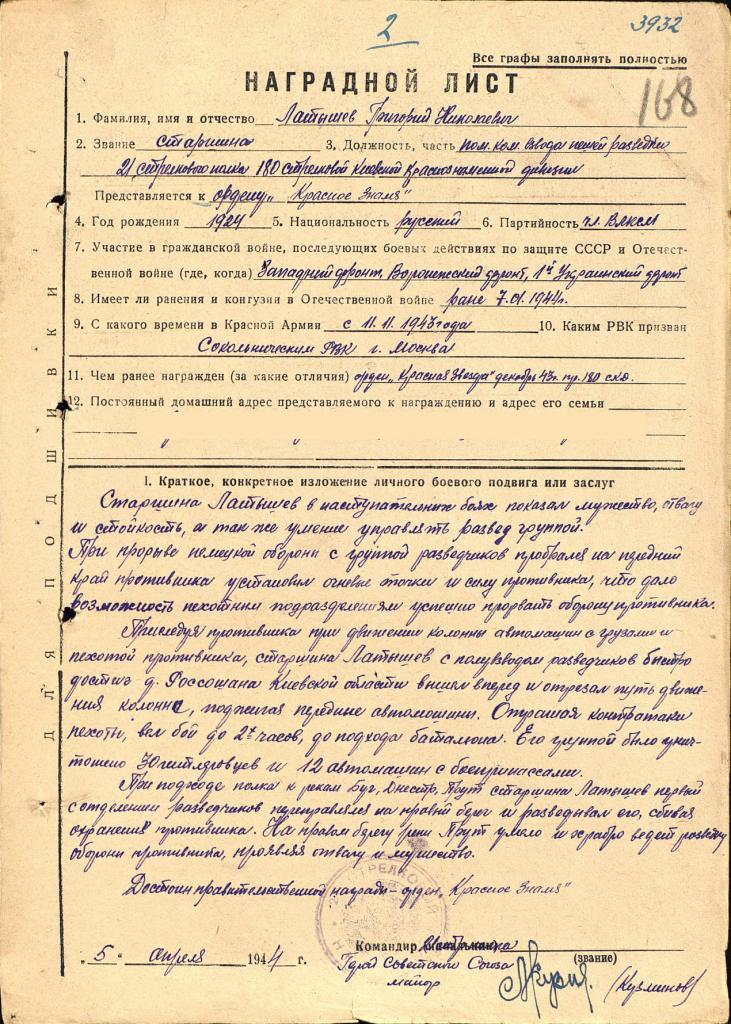 2
3932
Все графы заполнять полностью
НАГРАДНОЙ ЛИСТ
168
1. Фамилия, имя и отчество Латышев Григорий Николаевич
2. Звание старшина 3, Должность, часть пом. ком. взвода пешей разведки
21 стрелкового полка 180 стрелковой Киевской Краснознаменной дивизии
Представляется к ордену „Красное Знамя"
4. Год рождения 1924 5. Национальность русский 6. Партийность чл. ВЛКСМ
7. Участие в гражданской войне, последующих боевых действиях по защите СССР и Отечест-
венной войне (где, когда) Западный фронт, Воронежский фронт, 1й Украинский фронт
8. Имеет ли ранения и контузии в Отечественной войне ране 7.01.1944г.
9. С какого времени в Красной Армии с 11.11.1943 года 10. Каким РВК призван
Сокольническим РВК г. Москва
11. Чем ранее награжден (за какие отличия) орден „Красная Звезда" декабрь 43г. пр. 180 скд.
12. Постоянный домашний адрес представляемого к награждению и адрес его семьи
ДЛЯ ПОДШИВКИ
I. Краткое, конкретное изложение личного боевого подвига или заслуг
Старшина Латышев в наступательных боях показал мужество, отвагу
и стойкость, а так же умение управлять развед группой.
При прорыве немецкой обороны с группой разведчиков пробрался на передний
край противника установил огневые точки и силу противника, что дало
возможность пехотным подразделениям успешно прорвать оборону противника.
Преследуя противника при движении колонны автомашин с грузами и
пехотой противника, старшина Латышев с полувзводом разведчиков быстро
достиг д. Россошана Киевской области вышел вперед и отрезал путь движе-
ния колонны, поджигая передние автомашины. Отражая контратаки
пехоты, вел бой до 2х часов, до подхода батальона. Его группой было унич-
тожено 30 гитлеровцев и 12 автомашин с боеприпассами.
При подходе полка к рекам Буг, Днестр, Прут старшина Латышев первый
с отделением разведчиков переправлялся на правый берег и разведывал его, сбивая
охранения противника. На правом берегу реки Прут умело и храбро ведет разведку
обороны противника, проявляя отвагу и мужество.
Достоин правительственной награды - орден „Красное Знамя"
„5" апреля 1944 г.
Командир
Герой Советского Союза
майор
(звание)
(Кузминов)